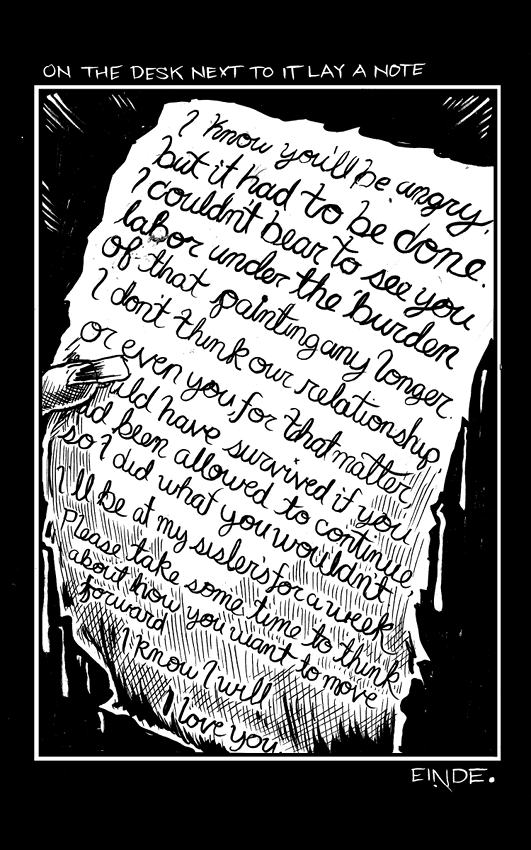 ON THE DESK NEXT TO IT LAY A NOTE
I know you'll be angry,
but it had to be done.
I couldn't bear to see you
labor under the burden
of that painting any longer.
I don't think our relationship
or even you, for that matter
uld have survived if you
had been allowed to continue
so I did what you wouldn't
I'll be at my sister's for a week
Please take some time to think
about how you want to move
forward
I know I will
I love you
EINDE.